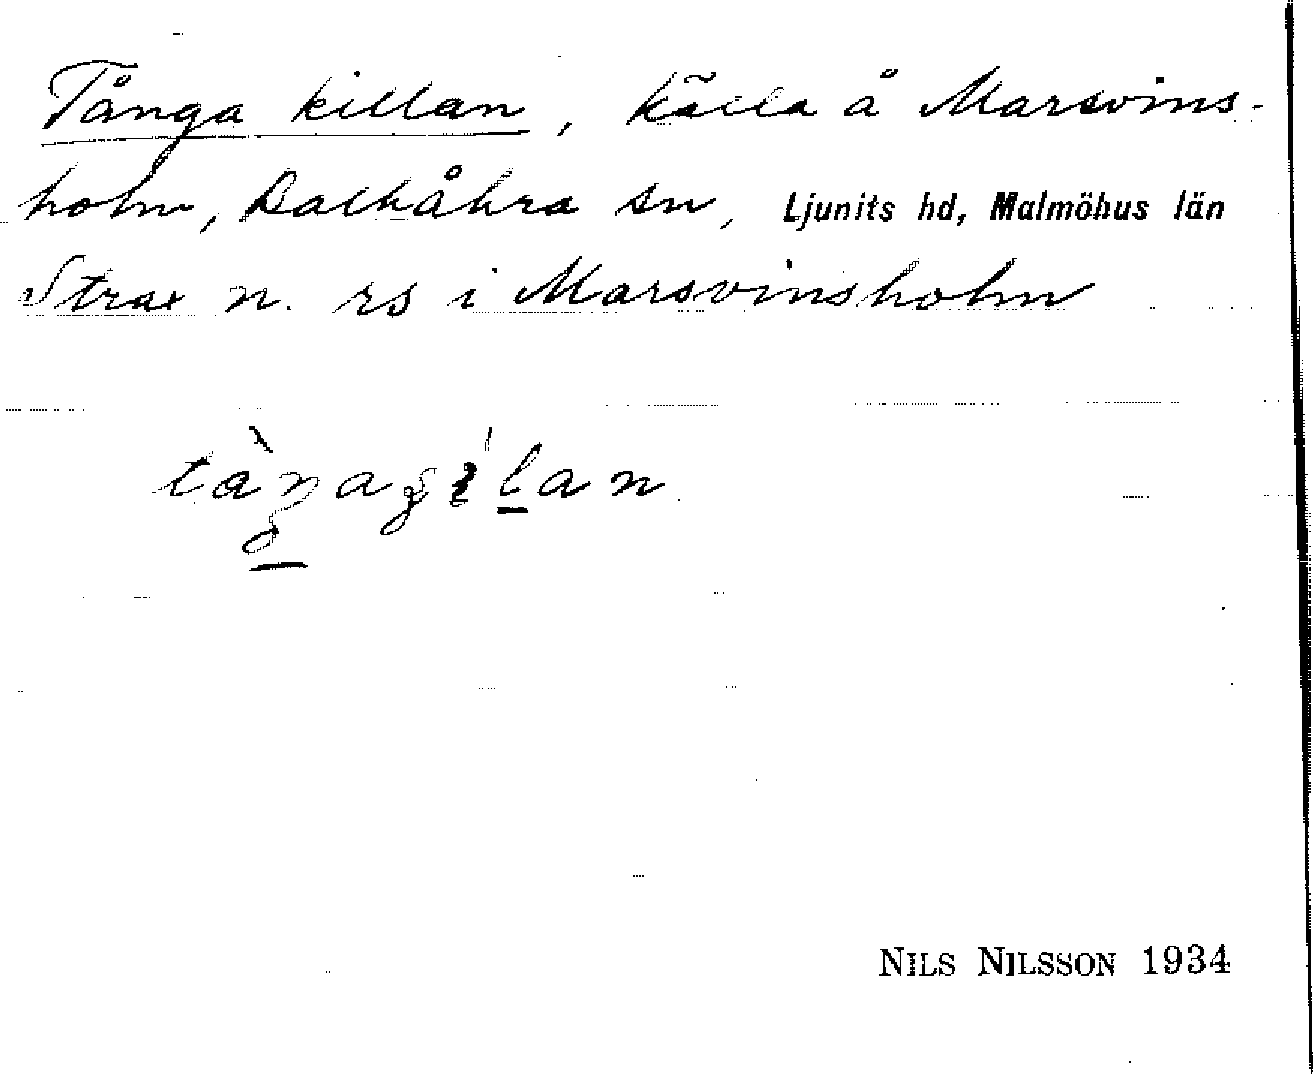 Tånga killan, källa å Marsvins-
holm, Balkåkra sn, Ljunits hd, Malmöhus län
Strax n. rs i Marsvinsholm
NILS NILSSON 1934